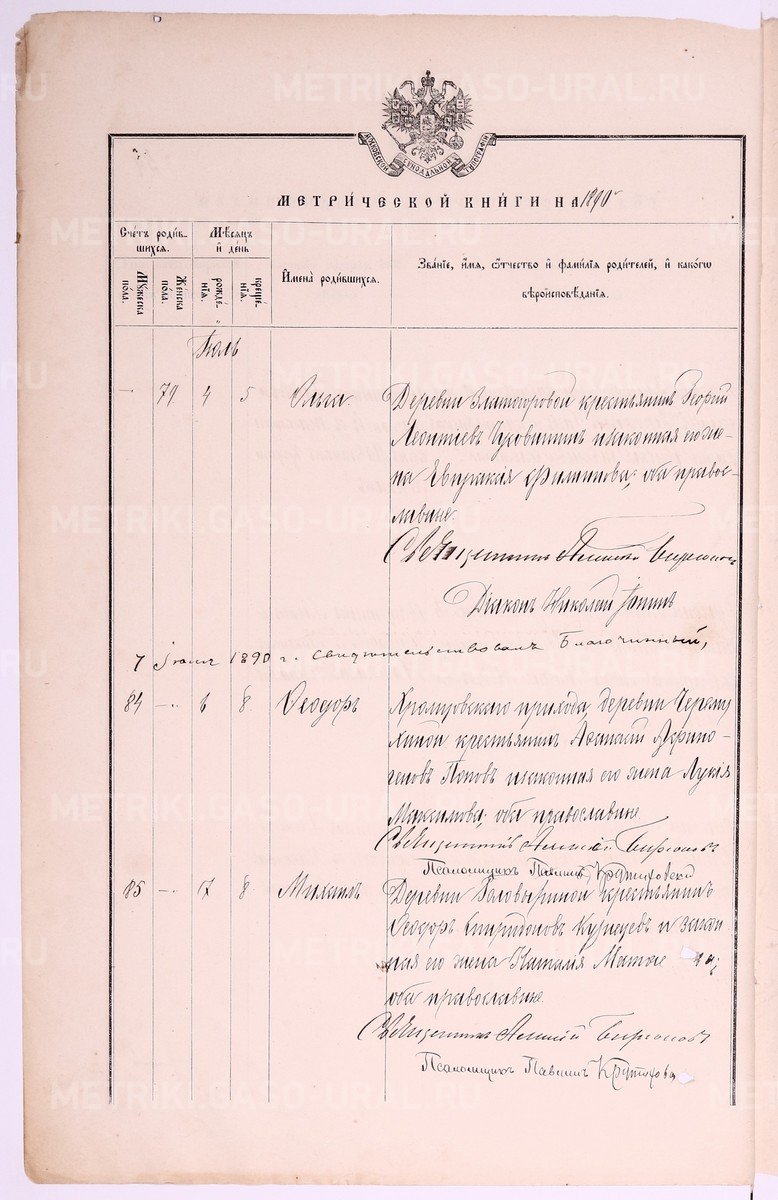 METRIKI.GASO-URAL.RU
МОСКОВСКОЙ СѴНОДАЛЬНОЙ ТИПОГРАФІИ
МЕТРИЧЕСКОЙ КНИГИ НА 1890 г
Счетъ родив-
шихся.
Мѣсяцъ
и день
Мужеска
пола.
Женска
пола.
рожде-
нія.
креще-
нія.
Имена родившихся.
Званіе, имя, отчество и фамилія родителей, и какого
вѣроисповѣданія.
Іюль
— 79 4 5 Ольга Деревни Златогоровой крестьянинъ Георгій
Леонтіевъ и законная его же-
на Евпраксія Филиппова; оба правос-
лавные.
Священникъ Алексій Бирюковъ
Діаконъ Николай
7 Іюля 1890 г. свидѣтельствовалъ Благочинный,
84 — 6 8 Ѳеодоръ Храмцовскаго прихода, деревни
крестьянинъ Аѳанасій Афино-
геновъ Поповъ и законная его жена Лукія
Максимова; оба православные
Священникъ Алексій Бирюковъ
Псаломщикъ Павлинъ Кротковскій
85 — 7 8 Михаилъ Деревни Головыриной крестьянинъ
Ѳеодоръ Спиридоновъ Кузнецевъ и закон
ная его жена Наталія
оба православные
Священникъ Алексій Бирюковъ
Псаломщикъ Павлинъ